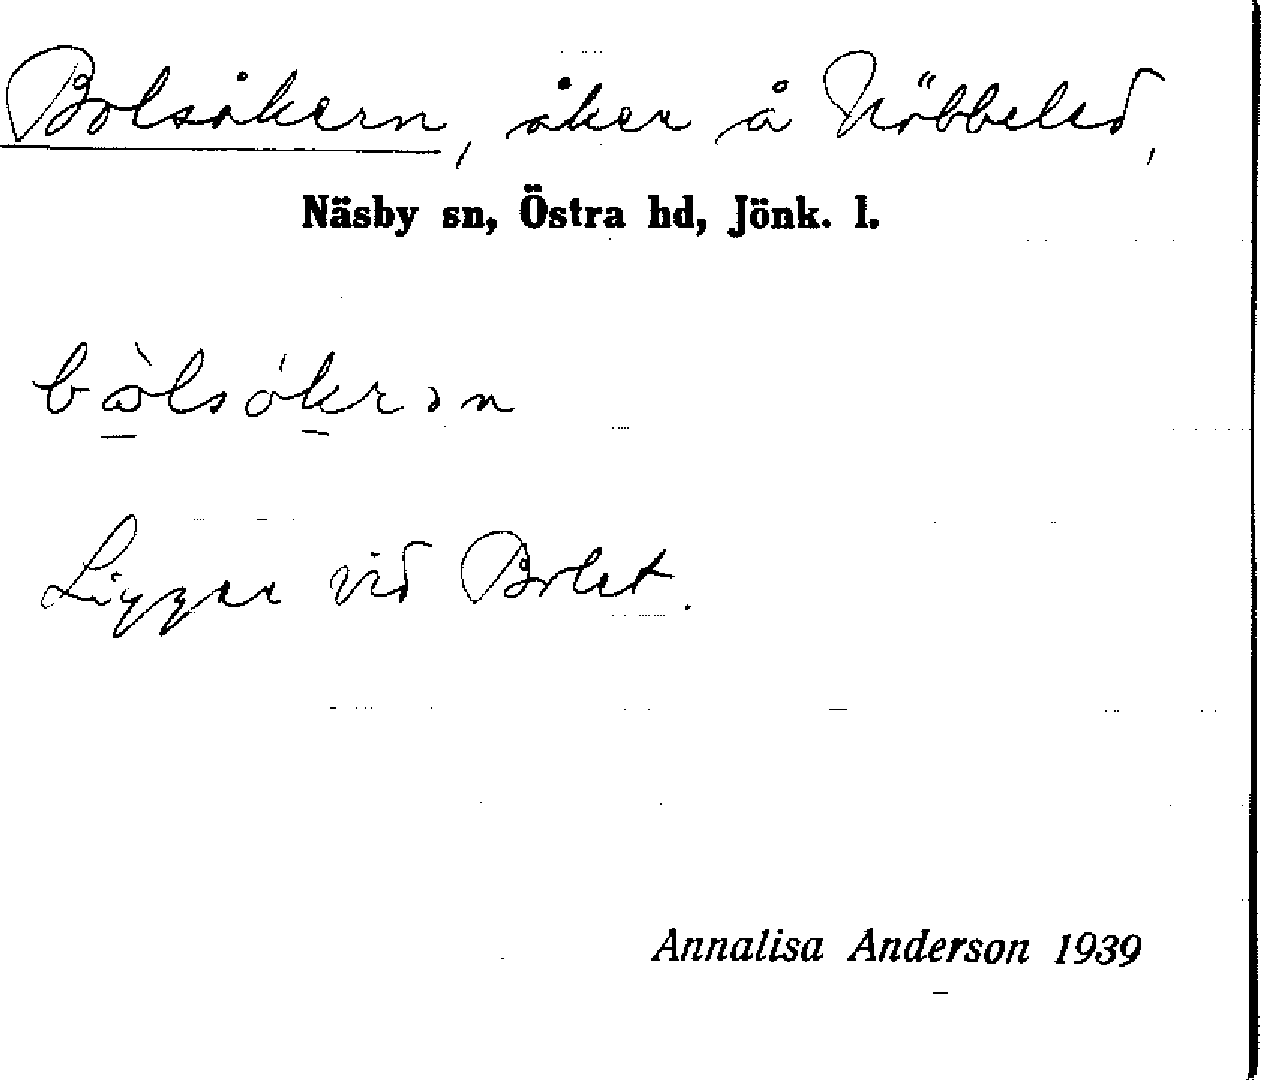 Bolsåkern, åker å Nöbbeled,
Näsby sn, Östra hd, Jönk. l.
Ligger vid Bolet.
Annalisa Anderson 1939